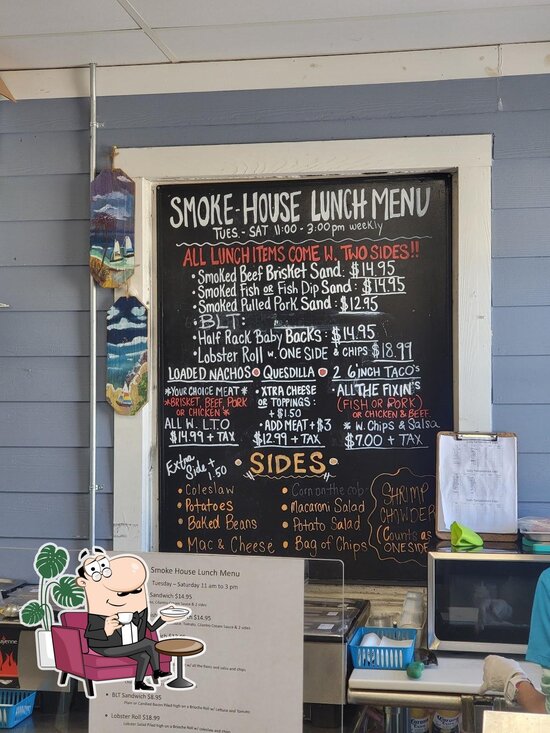 SMOKE-HOUSE LUNCH MENU
TUES.- SAT 11:00 - 3:00pm weekly
ALL LUNCH ITEMS COME W. TWO SIDES!!
• Smoked Beef Brisket Sand: $14.95
• Smoked Fish or Fish Dip Sand: $14.95
• Smoked Pulled Pork Sand: $12.95
• BLT:
• Half Rack Baby Backs: $14.95
• Lobster Roll w. ONE SIDE & CHIPS $18.99
LOADED NACHOS • QUESDILLA • 2 6"INCH TACO'S
*YOUR CHOICE MEAT*
*BRISKET, BEEF, PORK
OR CHICKEN*
ALL W. L.T.O
$14.99 + TAX
• XTRA CHEESE
OR TOPPINGS:
+ $1.50
• ADD MEAT + $3
$12.99 + TAX
• ALL THE FIXIN'S
(FISH OR PORK)
OR CHICKEN & BEEF.
* W. CHIPS & SALSA
$7.00 + TAX
Extra
Side + 1.50
• SIDES •
• Coleslaw
• Potatoes
• Baked Beans
• Mac & Cheese
• Corn on the cob
• Macaroni Salad
• Potato Salad
• Bag of Chips
SHRIMP
CHOWDER
Counts as
ONE SIDE
Smoke House Lunch Menu
Tuesday – Saturday 11 am to 3 pm
Sandwich $14.95
$14.95
BLT Sandwich $8.95
Plain or Candied Bacon Piled high on a Brioche Roll w/ Lettuce and Tomato
Lobster Roll $18.99
Lobster Salad Piled high on a Brioche Roll